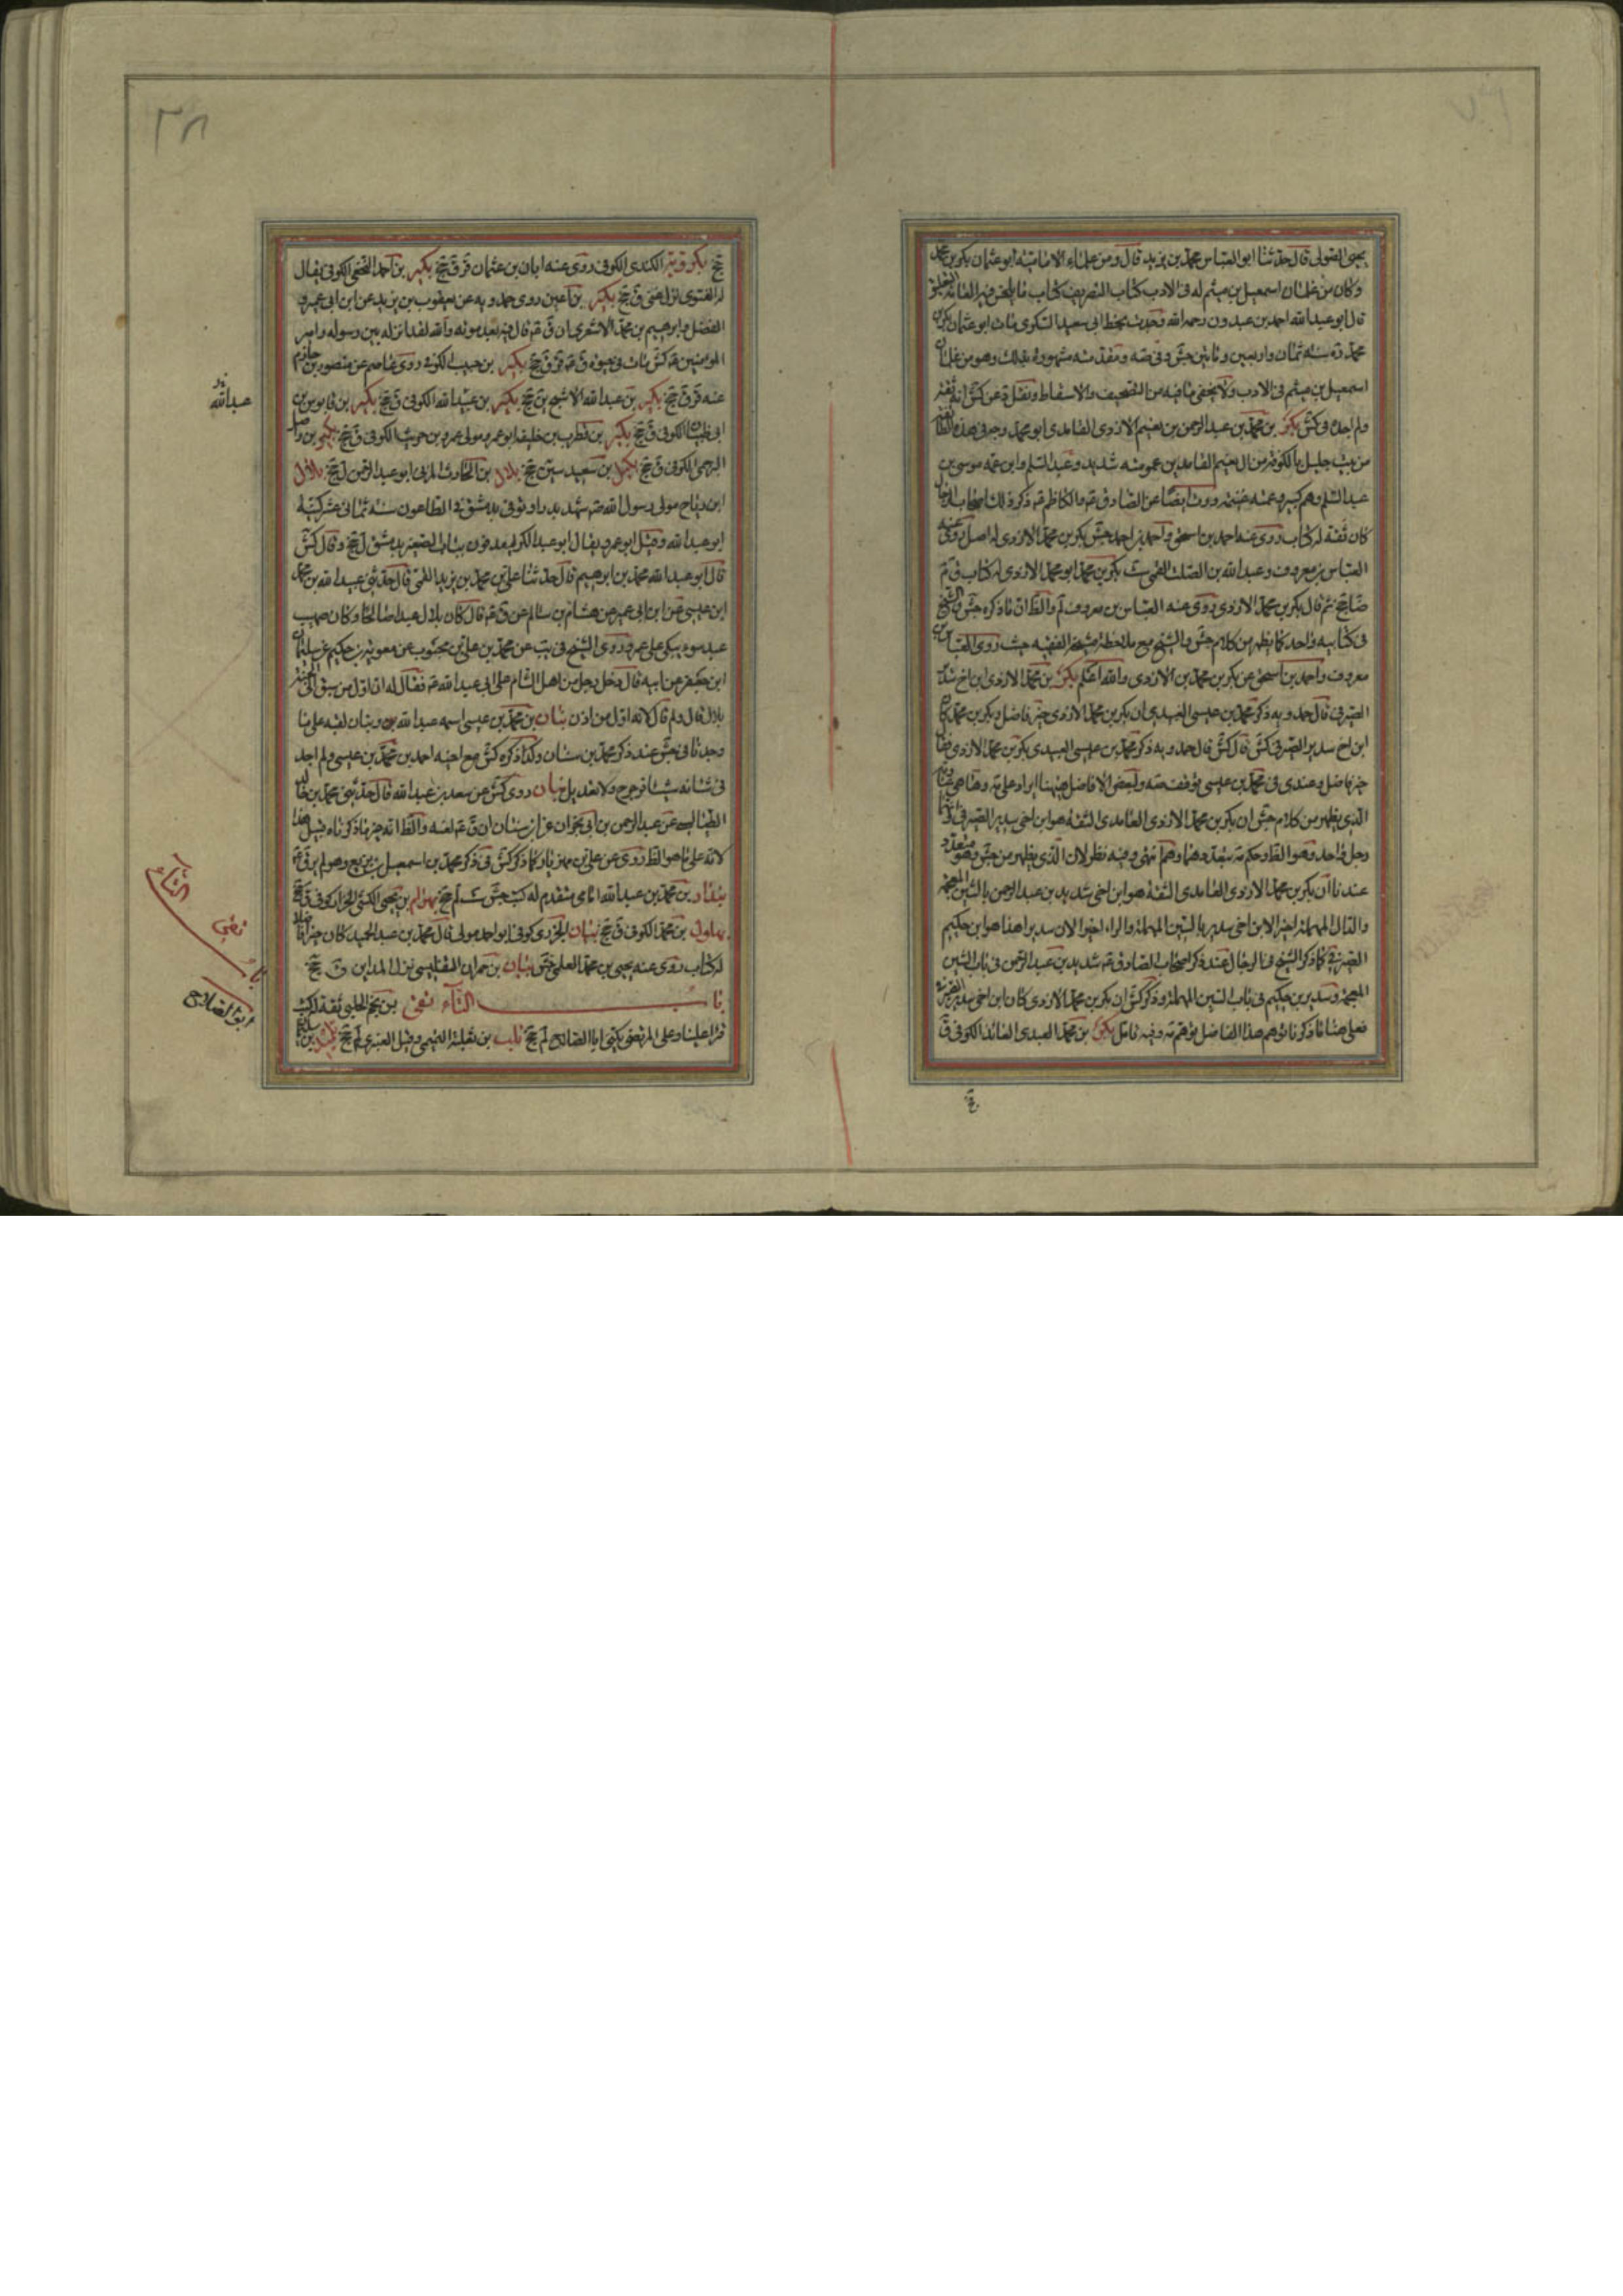 يحيى الصولى قال حدثنا ابو العباس محمد بن يزيد قال ومن علماء الامامية ابو عثمان بكر بن محمد
وكان من غلمان اسمعيل بن ميثم له فى الادب كتاب التصريف كتاب ما يلحن فيه العامة التعليق
قال ابو عبد الله احمد بن عبدون رحمه الله وجدت بخط ابى سعيد السكرى مات ابو عثمان بكر بن
محمد ره سنة ثمان واربعين ومأتين جش وفى صه
اسمعيل بن ميثم فى الادب ولا يخفى ما فيه من التصحيف والاسقاط ونقل د عن كش انه ثقة
ولم اجده فى كش بكر بن محمد بن عبد الرحمن بن نعيم الازدى الغامدى ابو محمد وجه فى هذه الطائفة
من بيت جليل بالكوفة من ال نعيم الغامديين عمومته شديد وعبد السلم وابن عمه موسى بن
عبد السلم وهم كثير وعمته غنيمة روت ايضا عن الصادق والكاظم ذكر ذلك اصحاب الرجال
كان ثقة له كتاب روى عنه احمد بن اسحق واحمد بن احمد جش بكر بن محمد الازدى له اصل روى عنه
العباس بن معروف وعبد الله بن الصلت القمى ست بكر بن محمد ابو محمد الازدى له كتاب ق م
ضا جخ ثم قال بكر بن محمد الازدى روى عنه العباس بن معروف لم والظ ان ما ذكره جش والشيخ
فى كتابيه واحد كما يظهر من كلام جش والشيخ مع ملاحظة مشيخة الفقيه حيث روى العباس بن
معروف واحمد بن اسحق عن بكر بن محمد بن الازدى والله اعلم بكر بن محمد الازدى ابن اخ سدير
الصيرفى قال حمدويه ذكر محمد بن عيسى العبيدى ان بكر بن محمد الازدى خير فاضل وبكر بن محمد كان
ابن اخ سدير الصيرفى كش قال كش قال حمدويه ذكر محمد بن عيسى العبيدى بكر بن محمد الازدى فقال
خير فاضل وعندى فى محمد بن عيسى توقف صه ولبعض الافاضل هيهنا ايراد
الذى يظهر من كلام جش ان بكر بن محمد الازدى الغامدى الثقة هو ابن اخى سدير الصيرفى
رجل واحد وهو الظ وحكم بتعدده انتهى وفيه نظر لان الذى يظهر من جش وهو
عندنا ان بكر بن محمد الازدى الغامدى الثقة هو ابن اخى شديد بن عبد الرحمن بالشين المعجمة
والدال المهملة اخيرا لا ابن اخى سدير بالسين المهملة والراء اخيرا لان سديرا هذا هو ابن حكيم
الصيرفى كما ذكر الشيخ فى الرجال عند ذكر اصحاب الصادق شديد بن عبد الرحمن فى باب الشين
المعجمة وسدير بن حكيم فى باب السين المهملة وذكر كش ان بكر بن محمد الازدى كان ابن اخى سدير الصيرفى
فعلى هذا ما ذكره هذا الفاضل وفيه تامل بكر بن محمد العبدى العابد الكوفى ق
جخ
٣٨
جخ بكرويه الكندى الكوفى روى عنه ابان بن عثمان قر ق جخ بكير بن احمد النخعى الكوفى يقال
بكير بن اعين روى حمدويه عن يعقوب بن يزيد عن ابن ابى عمير
الفضل وابرهيم بن محمد الاشعريان ق قال فيه بعد موته والله لقد انزله بين رسوله وامير
المؤمنين كش مات فى حيوة ق قر ق جخ بكير بن حبيب الكوفى روى عاصم عن منصور بن حازم
عنه قر ق جخ بكير بن عبد الله الاشج ين جخ بكير بن عبيد الله الكوفى ق جخ بكير بن قابوس بن
عبد الله
ابى ظبيان الكوفى ق جخ بكير بن قطرب بن خليفة ابو عمر مولى عمرو بن حريث الكوفى ق جخ بكير بن واصل
البرجمى الكوفى ق جخ بكيل بن سعيد سين جخ بلال بن الحارث المزنى ابو عبد الرحمن ل جخ بلال
ابن رباح مولى رسول الله شهد بدرا وتوفى بدمشق فى الطاعون سنة ثمانى عشر كنيته
ابو عبد الله وقيل ابو عمر ويقال ابو عبد الكريم مدفون بباب الصغير بدمشق ل جخ وقال كش
قال ابو عبد الله محمد بن ابرهيم قال حدثنا على بن محمد بن يزيد القمى قال حدثنى عبد الله بن محمد
ابن عيسى عن ابن ابى عمير عن هشام بن سالم عن ق قال كان بلال عبدا صالحا وكان صهيب
عبد سوء يبكى على عمر وروى الشيخ فى يب عن محمد بن على بن محبوب عن معوية بن حكيم عن سليمان
ابن جعفر عن ابيه قال دخل رجل من اهل الشام على ابى عبد الله فقال له ان اول من سبق الى الجنة
بلال قال ولم قال لانه اول من اذن بنان بن محمد بن عيسى اسمه عبد الله وبنان لقبه على ما
وجدنا فى جش عند ذكر محمد بن سنان وكذا ذكره كش مع اخيه احمد بن محمد بن عيسى ولم اجد
فى شانه شيئا من جرح ولا تعديل بنان روى كش عن سعد بن عبد الله قال حدثنى محمد بن خالد
الطيالسى عن عبد الرحمن بن ابى نجران عن ابن سنان ان ق لعنه والظ انه غير ما ذكرناه قبيل هذا
لانه على ما هو الظ روى عن على بن مهزيار كما ذكر كش فى ذكر محمد بن اسمعيل بن بزيع وهو لم يرق
بندار بن محمد بن عبد الله امامى متقدم له كتب جش ست لم جخ بهرام بن يحيى الكشى الخزاز كوفى ق جخ
بهلول بن محمد الكوفى ق جخ بيان الجزرى كوفى ابو احمد مولى قال محمد بن عبد الحميد كان خيرا فاضلا
له كتاب روى عنه يحيى بن محمد العليمى جش بيان بن حمران التفليسى نزل المداين ق جخ
باب التآء تقى بن نجم الحلبى ثقة له كتب
قرا علينا وعلى المرتضى يكنى ابا الصلاح لم جخ تلب بن ثعلبة التميمى وقيل العنبرى ل جخ تليد بن سليمان
باب التآء
تقى
ابو الصلاح